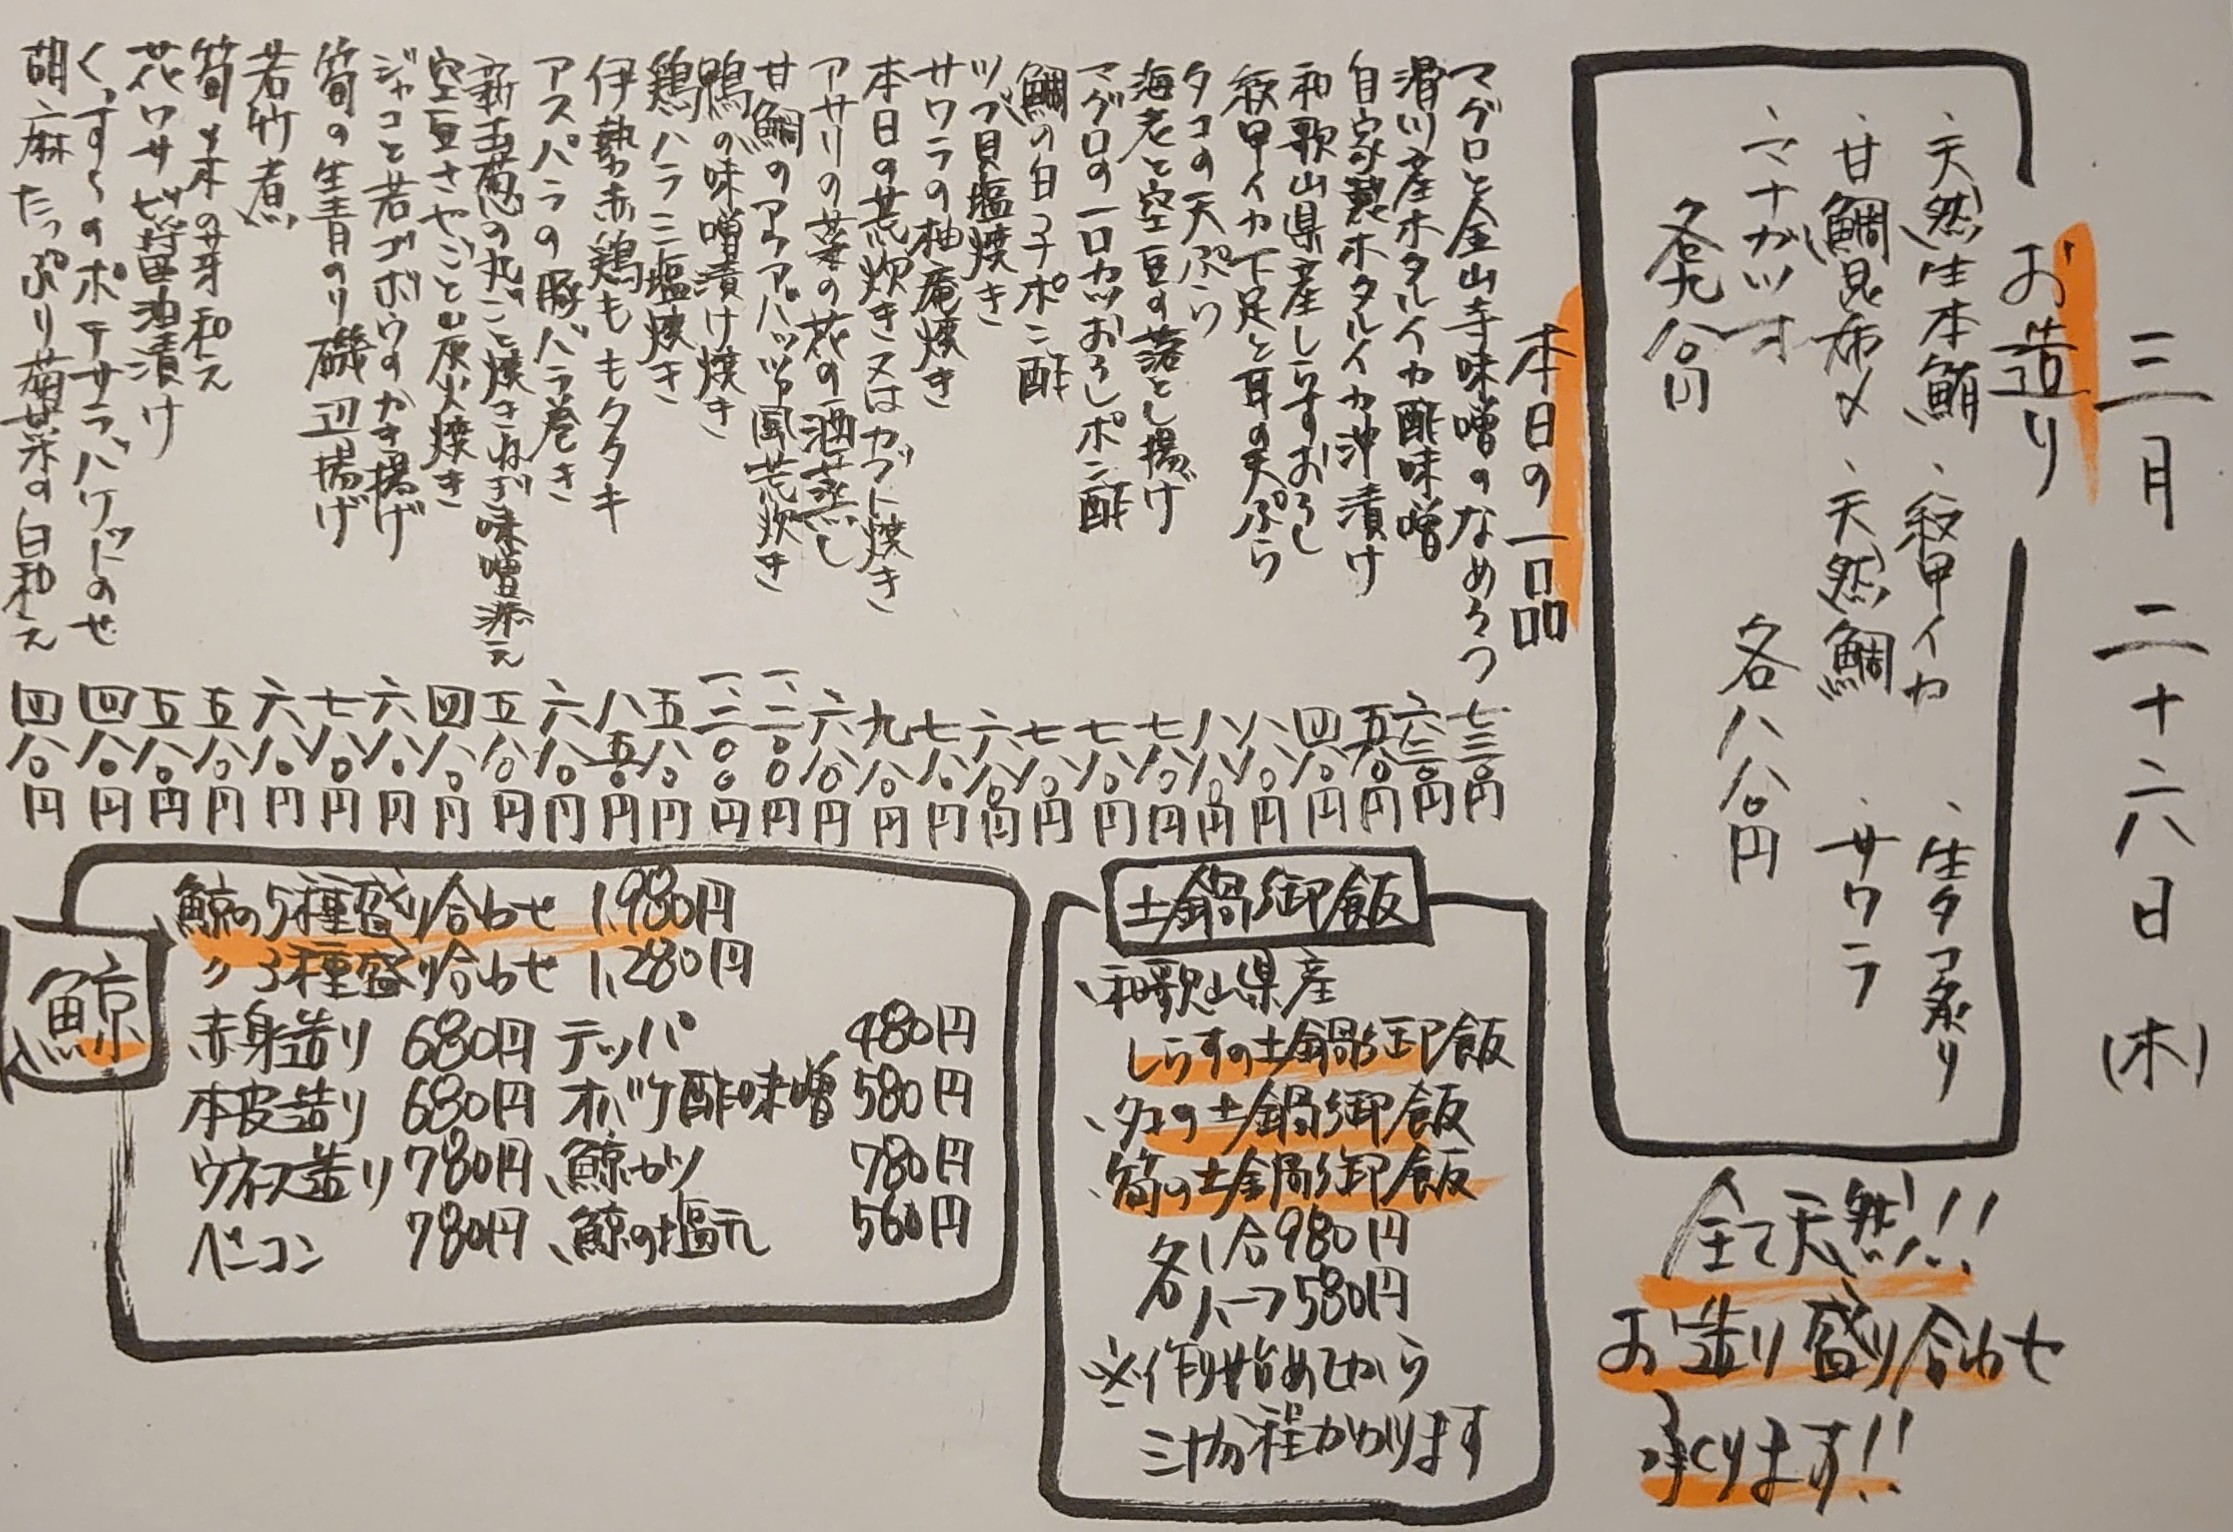 三月二十六日(木)
お造り
、天然生本鮪 、紋甲イカ 、生タコ炙り
、甘鯛昆布〆 、天然鯛 、サワラ
、マナガツオ
各八八〇円
各九八〇円
全て天然!!
お造り盛り合わせ
承ります!!
本日の一品
マグロと金山寺味噌のなめろう 七三〇円
滑川産ホタルイカ酢味噌 六三〇円
自家製ホタルイカ沖漬け 五八〇円
和歌山県産しらすおろし 四八〇円
紋甲イカ下足と耳の天ぷら 八八〇円
タコの天ぷら 八八〇円
海老と空豆の落とし揚げ 七八〇円
マグロの一口カツおろしポン酢 七八〇円
鯛の白子ポン酢 七八〇円
ツブ貝塩焼き 六八〇円
サワラの柚庵焼き 七八〇円
本日の荒炊き又はカブト焼き 九八〇円
アサリの菜の花の酒蒸し 六八〇円
甘鯛のアクアパッツァ風荒炊き 一、二〇〇円
鴨の味噌漬け焼き 一、二〇〇円
鶏ハラミ塩焼き 五八〇円
伊勢赤鶏ももタタキ 八五〇円
アスパラの豚バラ巻き 六八〇円
新玉葱の丸ごと焼きねぎ味噌添え 五八〇円
空豆さやごと炭火焼き 四八〇円
ジャコと若ゴボウのかき揚げ 六八〇円
筍の生青のり磯辺揚げ 七八〇円
若竹煮 六八〇円
筍と木の芽和え 五八〇円
花ワサビ醤油漬け 五八〇円
くっすーのポテサラバケットのせ 四八〇円
胡麻たっぷり菊菜の白和え 四八〇円
土鍋御飯
、和歌山県産
しらすの土鍋御飯
、タコの土鍋御飯
、筍の土鍋御飯
各1合980円
各ハーフ580円
※作り始めてから
三十分程かかります
鯨
鯨の5種盛り合わせ 1,980円
〃 3種盛り合わせ 1,280円
赤身造り 680円 テッパ 480円
本皮造り 680円 オバケ酢味噌 580円
ウネス造り 780円 、鯨カツ 780円
ベーコン 780円 、鯨の塩元 560円